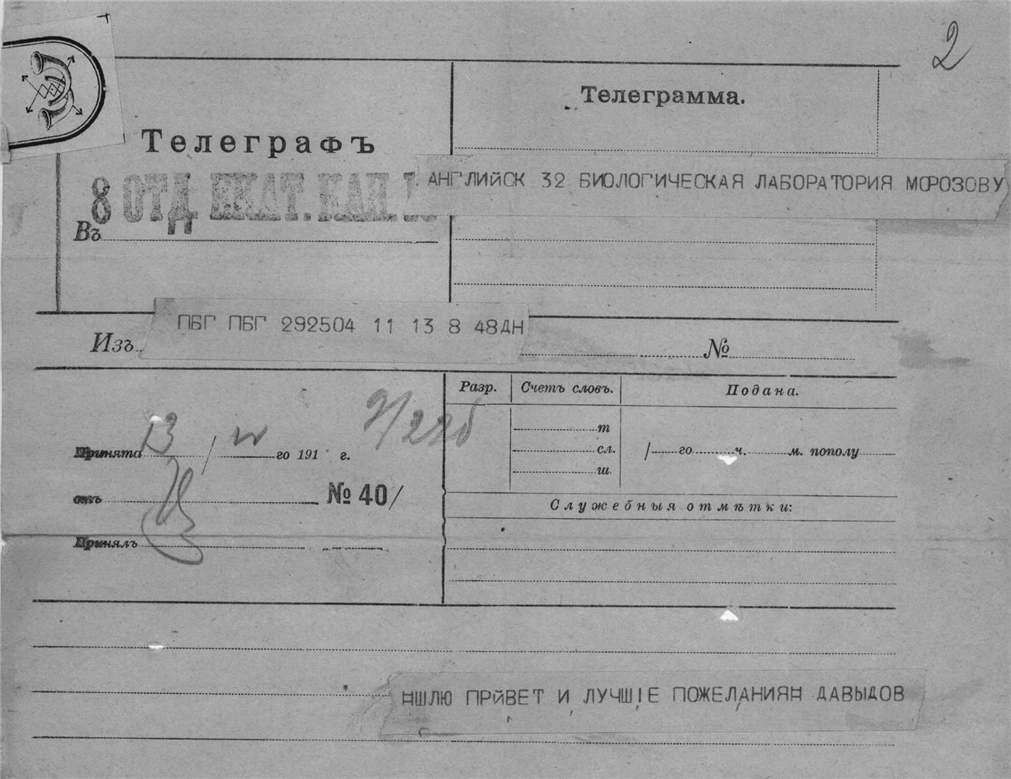 2
Телеграмма.
Телеграфъ
8 ОТД ЕКАТ. КАН.
АНГЛИЙСК 32 БИОЛОГИЧЕСКАЯ ЛАБОРАТОРИЯ МОРОЗОВУ
Въ
ПБГ ПБГ 292504 11 13 8 48ДН
Изъ
№
Разр. Счетъ словъ. Подана.
13/IV 9/22б
Принята го 191 г.
т
сл. /го ч. м. пополу
ш.
отъ № 40/
Служебныя отмѣтки:
Принялъ
ШЛЮ ПРИВЕТ И ЛУЧШIЕ ПОЖЕЛАНИЯН ДАВЫДОВ